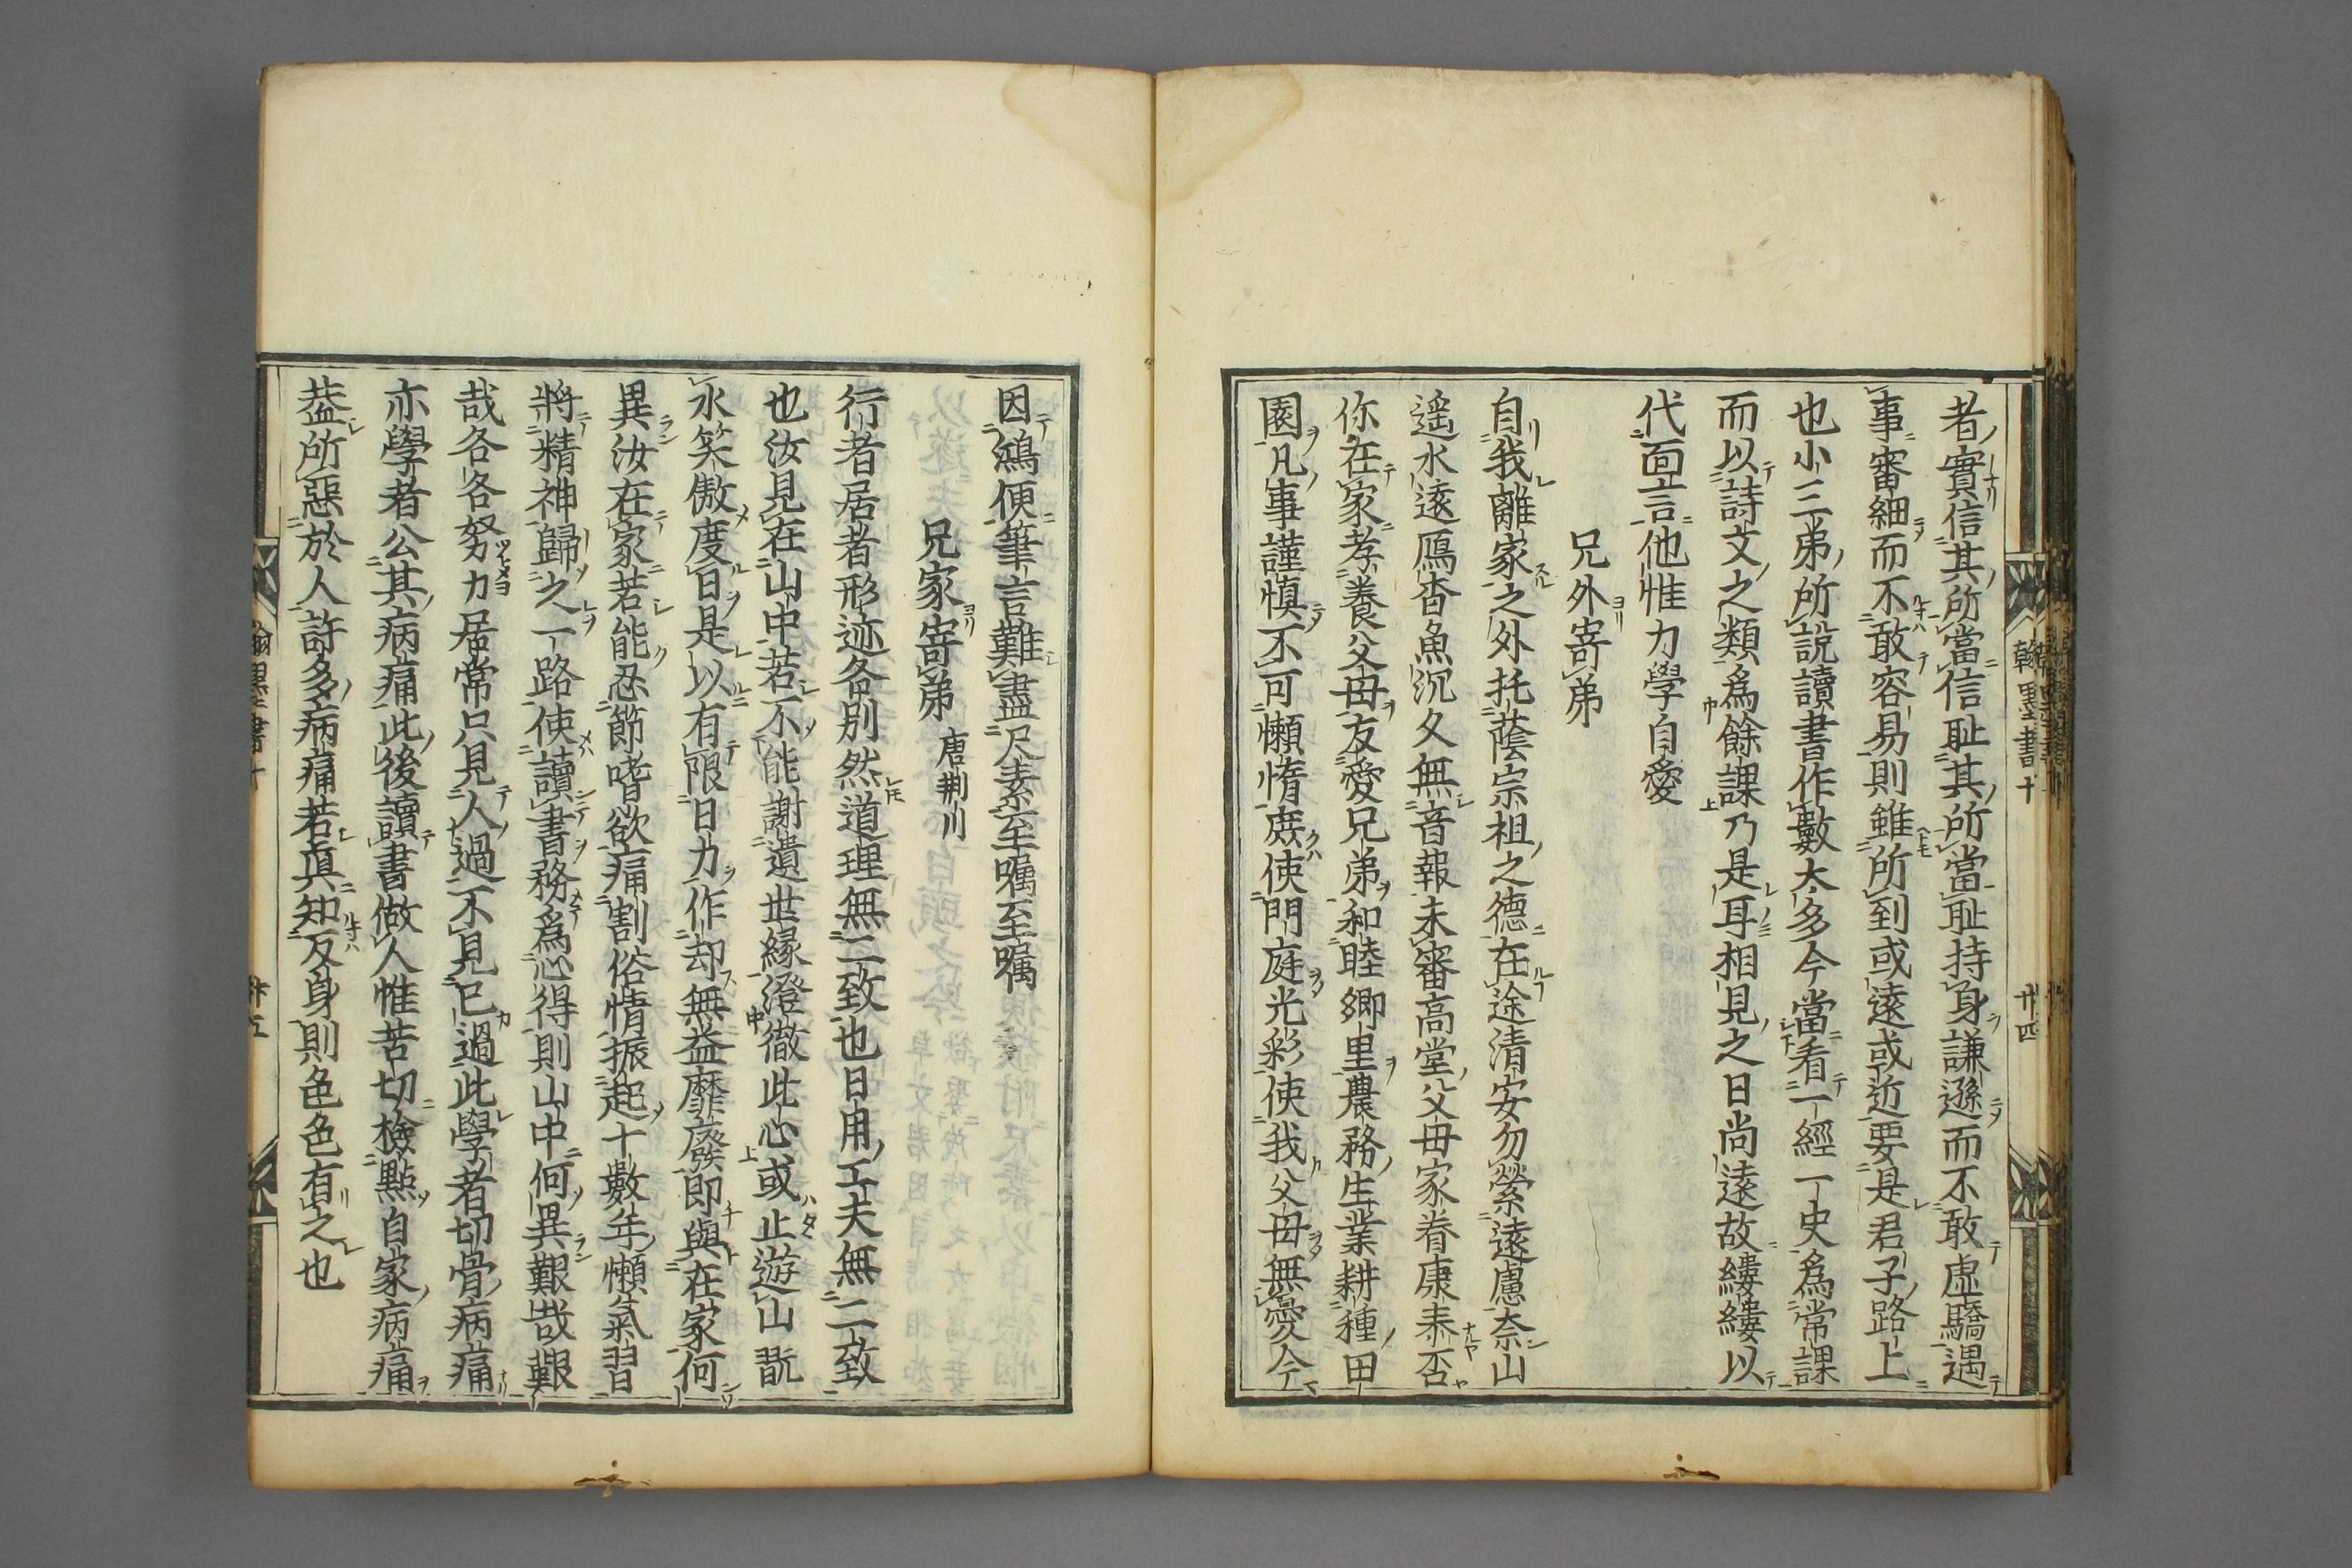 者實信其所當信耻其所當耻持身謙遜而不敢虚驕遇
事審細而不敢容易則雖所到或遠或近要是君子路上
也小三弟所説讀書作數大多今當看一經一史爲常課
而以詩文之類爲餘課乃是耳相見之日尚遠故縷縷以
代面言他惟力學自愛
兄外寄弟
自我離家之外托䕃宗祖之德在途清安勿縈遠慮奈山
遥水遠鴈杳魚沉久無音報未審高堂父母家眷康泰否
你在家孝養父母友愛兄弟和睦鄉里農務生業耕種田
園凡事謹慎不可懶惰庶使門庭光彩使我父母無憂今
翰墨書十
廿四
因鴻便筆言難盡尺素至囑至囑
兄家寄弟 唐荆川
行者居者形迹各別然道理無二致也日用工夫無二致
也汝見在山中若不能謝遺世緣澄徹此心或止遊山翫
水笑傲度日是以有限日力作却無益靡廢即與在家何
異汝在家若能忍節嗜欲痛割俗情振起十數年懶氣習
將精神歸之一路使讀書務爲心得則山中何異艱哉艱
哉各各努力居常只見人過不見己過此學者切骨病痛
亦學者公共病痛此後讀書做人惟苦切檢點自家病痛
葢所惡於人許多病痛若真知反身則色色有之也
翰墨書十
廿五